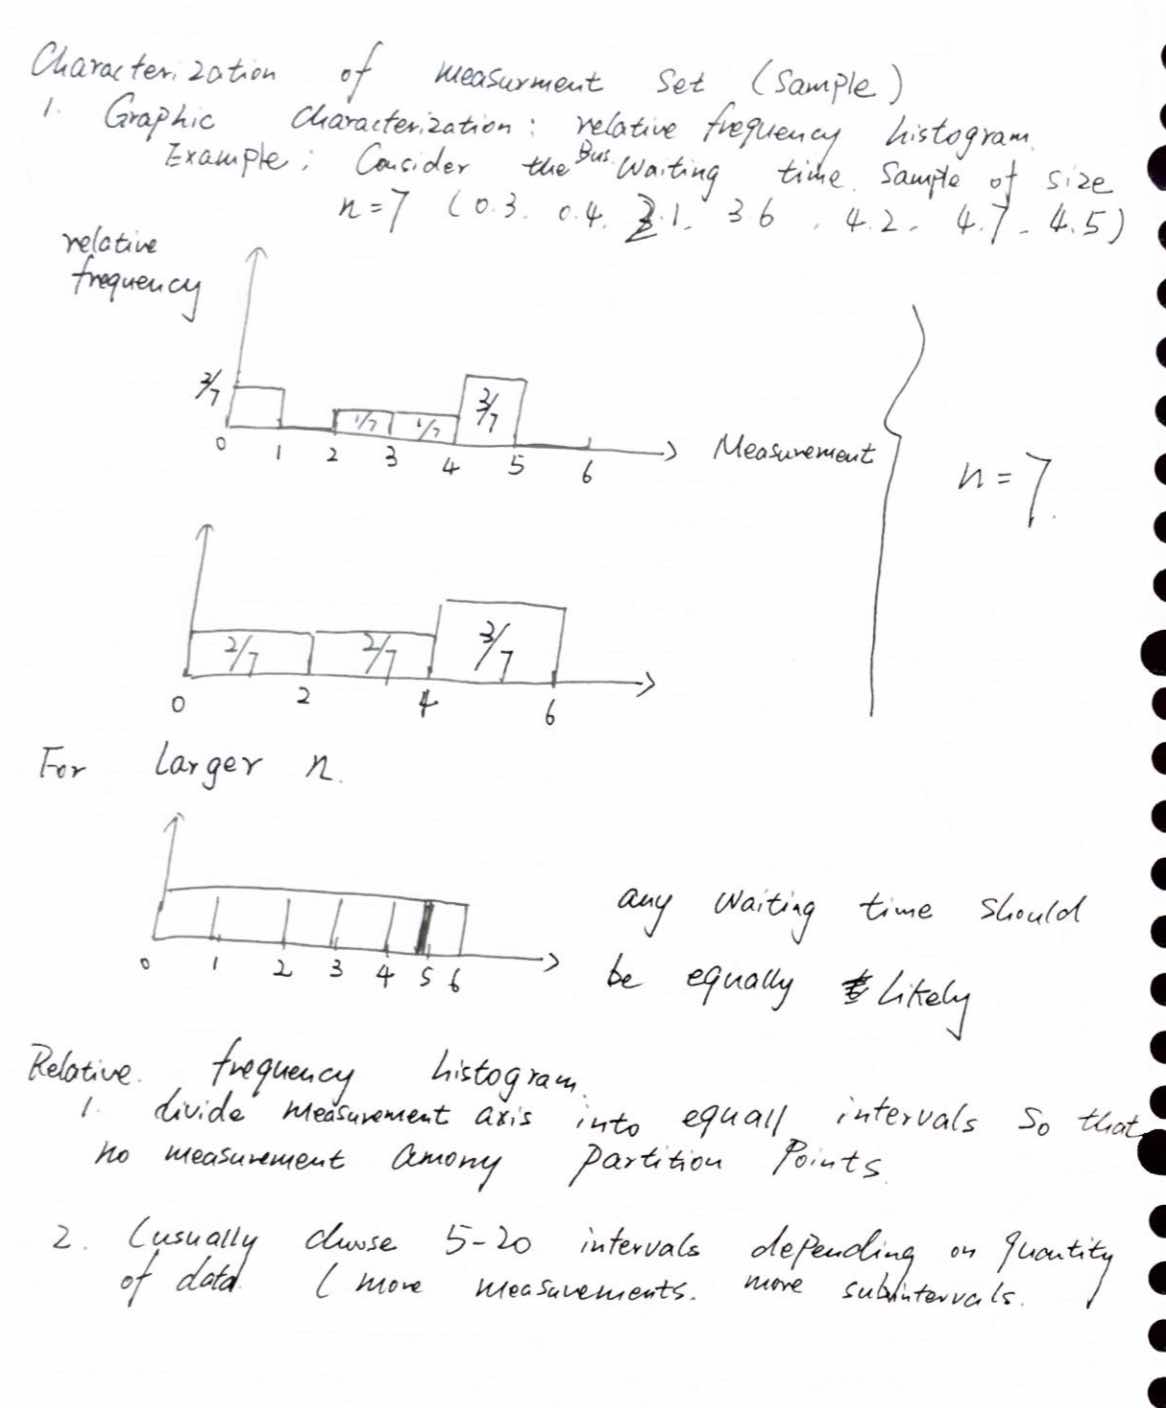 Characterization of measurment Set (Sample)
1. Graphic Characterization: relative frequency histogram.
Example: Consider the Bus Waiting time. Sample of size
n=7 (0.3. 0.4. 2.1. 3.6. 4.2. 4.7. 4.5)
relative
frequency
2/7
1/7 1/7 3/7
0 1 2 3 4 5 6
Measurement
n=7.
2/7 2/7 3/7
0 2 4 6
For larger n.
0 1 2 3 4 5 6
any waiting time should
be equally likely
Relative frequency histogram.
1. divide measurement axis into equall intervals so that
no measurement among partition points.
2. (usually choose 5-20 intervals depending on quantity
of data (more measurements. more subintervals.